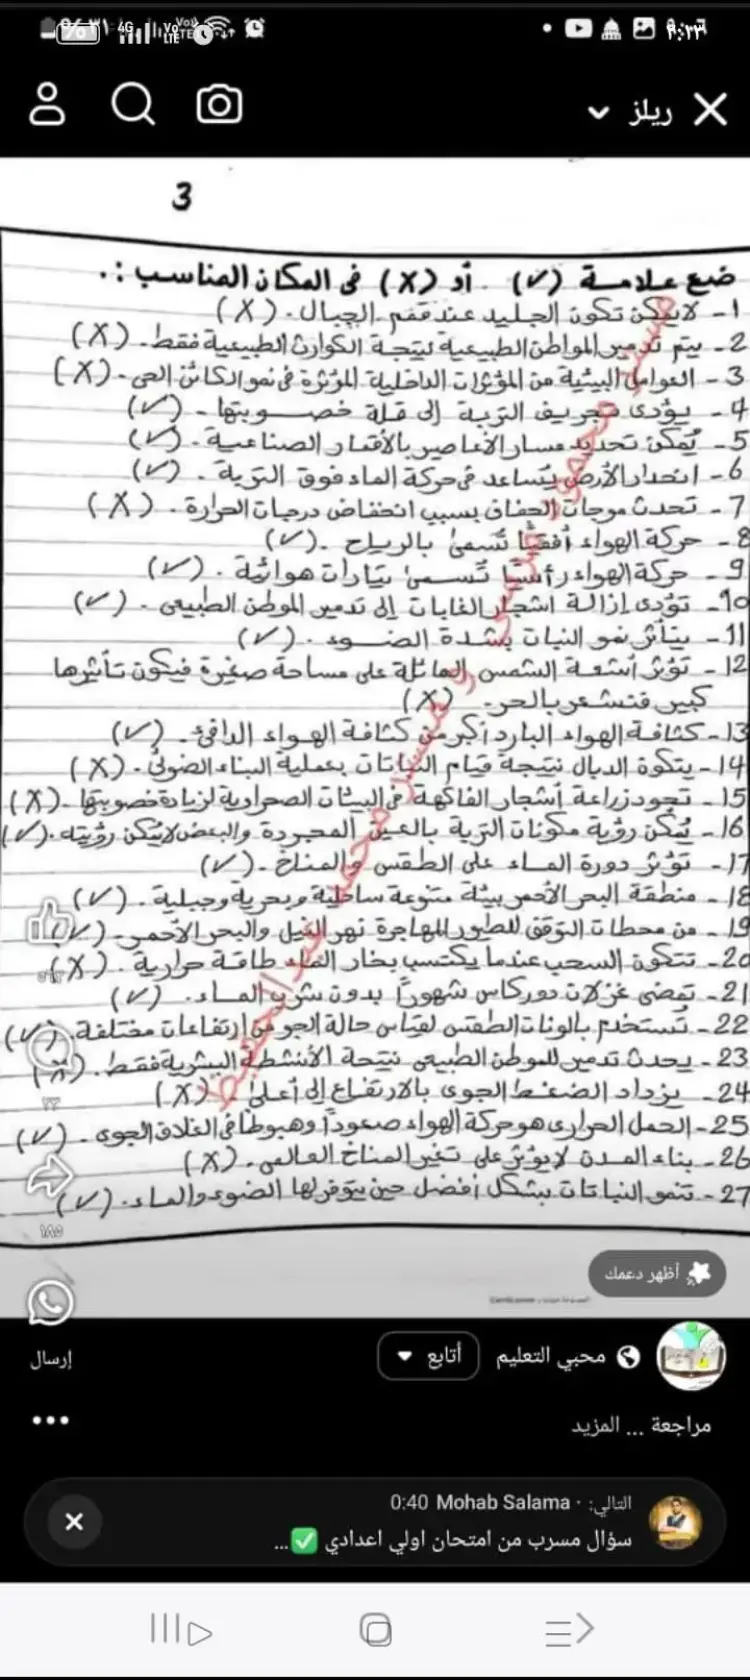 ٩:٢٣
٪٣١
4G
ريلز
3
ضع علامة (✓) أو (X) في المكان المناسب :.
1- لا يمكن تكون الجليد عند قمم الجبال. (X)
2- يتم تدمير المواطن الطبيعية نتيجة الكوارث الطبيعية فقط. (X)
3- العوامل البيئية من المؤثرات الداخلية المؤثرة في نمو الكائن الحي. (X)
4- يؤدى تجريف التربة إلى قلة خصوبتها. (✓)
5- يمكن تحديد مسار الأعاصير بالأقمار الصناعية. (✓)
6- انحدار الأرض يساعد في حركة الماء فوق التربة. (✓)
7- تحدث موجات الجفاف بسبب انخفاض درجات الحرارة. (X)
8- حركة الهواء أفقيًا تسمى بالرياح. (✓)
9- حركة الهواء رأسيًا تسمى تيارات هوائية. (✓)
10- تؤدى إزالة اشجار الغابات إلى تدمير الموطن الطبيعى. (✓)
11- يتأثر نمو النبات بشدة الضوء. (✓)
12- تؤثر أشعة الشمس المائلة على مساحة صغيرة فيكون تأثيرها
كبير فتشعر بالحر. (X)
13- كثافة الهواء البارد أكبر من كثافة الهواء الدافئ. (✓)
14- يتكون الدبال نتيجة قيام النباتات بعملية البناء الضوئى. (X)
15- تجود زراعة أشجار الفاكهة في البيئات الصحراوية لزيادة خصوبتها. (X)
16- يمكن رؤية مكونات التربة بالعين المجردة والبعض لا يمكن رؤيته. (✓)
17- تؤثر دورة الماء على الطقس والمناخ. (✓)
18- منطقة البحر الأحمر بيئة متنوعة ساحلية وبحرية وجبلية. (✓)
19- من محطات التوقف للطيور المهاجرة نهر النيل والبحر الأحمر. (✓)
20- تتكون السحب عندما يكتسب بخار الماء طاقة حرارية. (X)
21- تمضى غزلان دوركاس شهورًا بدون شرب الماء. (✓)
22- تستخدم بالونات الطقس لقياس حالة الجو من ارتفاعات مختلفة. (✓)
23- يحدث تدمير للموطن الطبيعى نتيجة الأنشطة البشرية فقط. (X)
24- يزداد الضغط الجوى بالارتفاع إلى أعلى. (X)
25- الحمل الحرارى هو حركة الهواء صعودًا وهبوطا في الغلاف الجوى. (✓)
26- بناء المدن لا يؤثر على تغير المناخ العالمى. (X)
27- تنمو النباتات بشكل أفضل حين يتوفر لها الضوء والماء. (✓)
٢٢
١٨٥
أظهر دعمك
إرسال
محبي التعليم
أتابع
مراجعة ... المزيد
التالي: · Mohab Salama 0:40
سؤال مسرب من امتحان اولي اعدادي ✅...